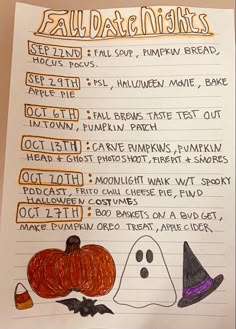 FALL DATE NIGHTS
SEP 22ND : FALL SOUP, PUMPKIN BREAD,
HOCUS POCUS.
SEP 29TH : PSL, HALLOWEEN MOVIE, BAKE
APPLE PIE
OCT 6TH : FALL BREWS TASTE TEST OUT
IN TOWN, PUMPKIN PATCH
OCT 13TH : CARVE PUMPKINS, PUMPKIN
HEAD + GHOST PHOTOSHOOT, FIREPIT + SMORES
OCT 20TH : MOONLIGHT WALK W/ SPOOKY
PODCAST, FRITO CHILI CHEESE PIE, FIND
HALLOWEEN COSTUMES
OCT 27TH : BOO BASKETS ON A BUDGET,
MAKE PUMPKIN OREO TREAT, APPLE CIDER